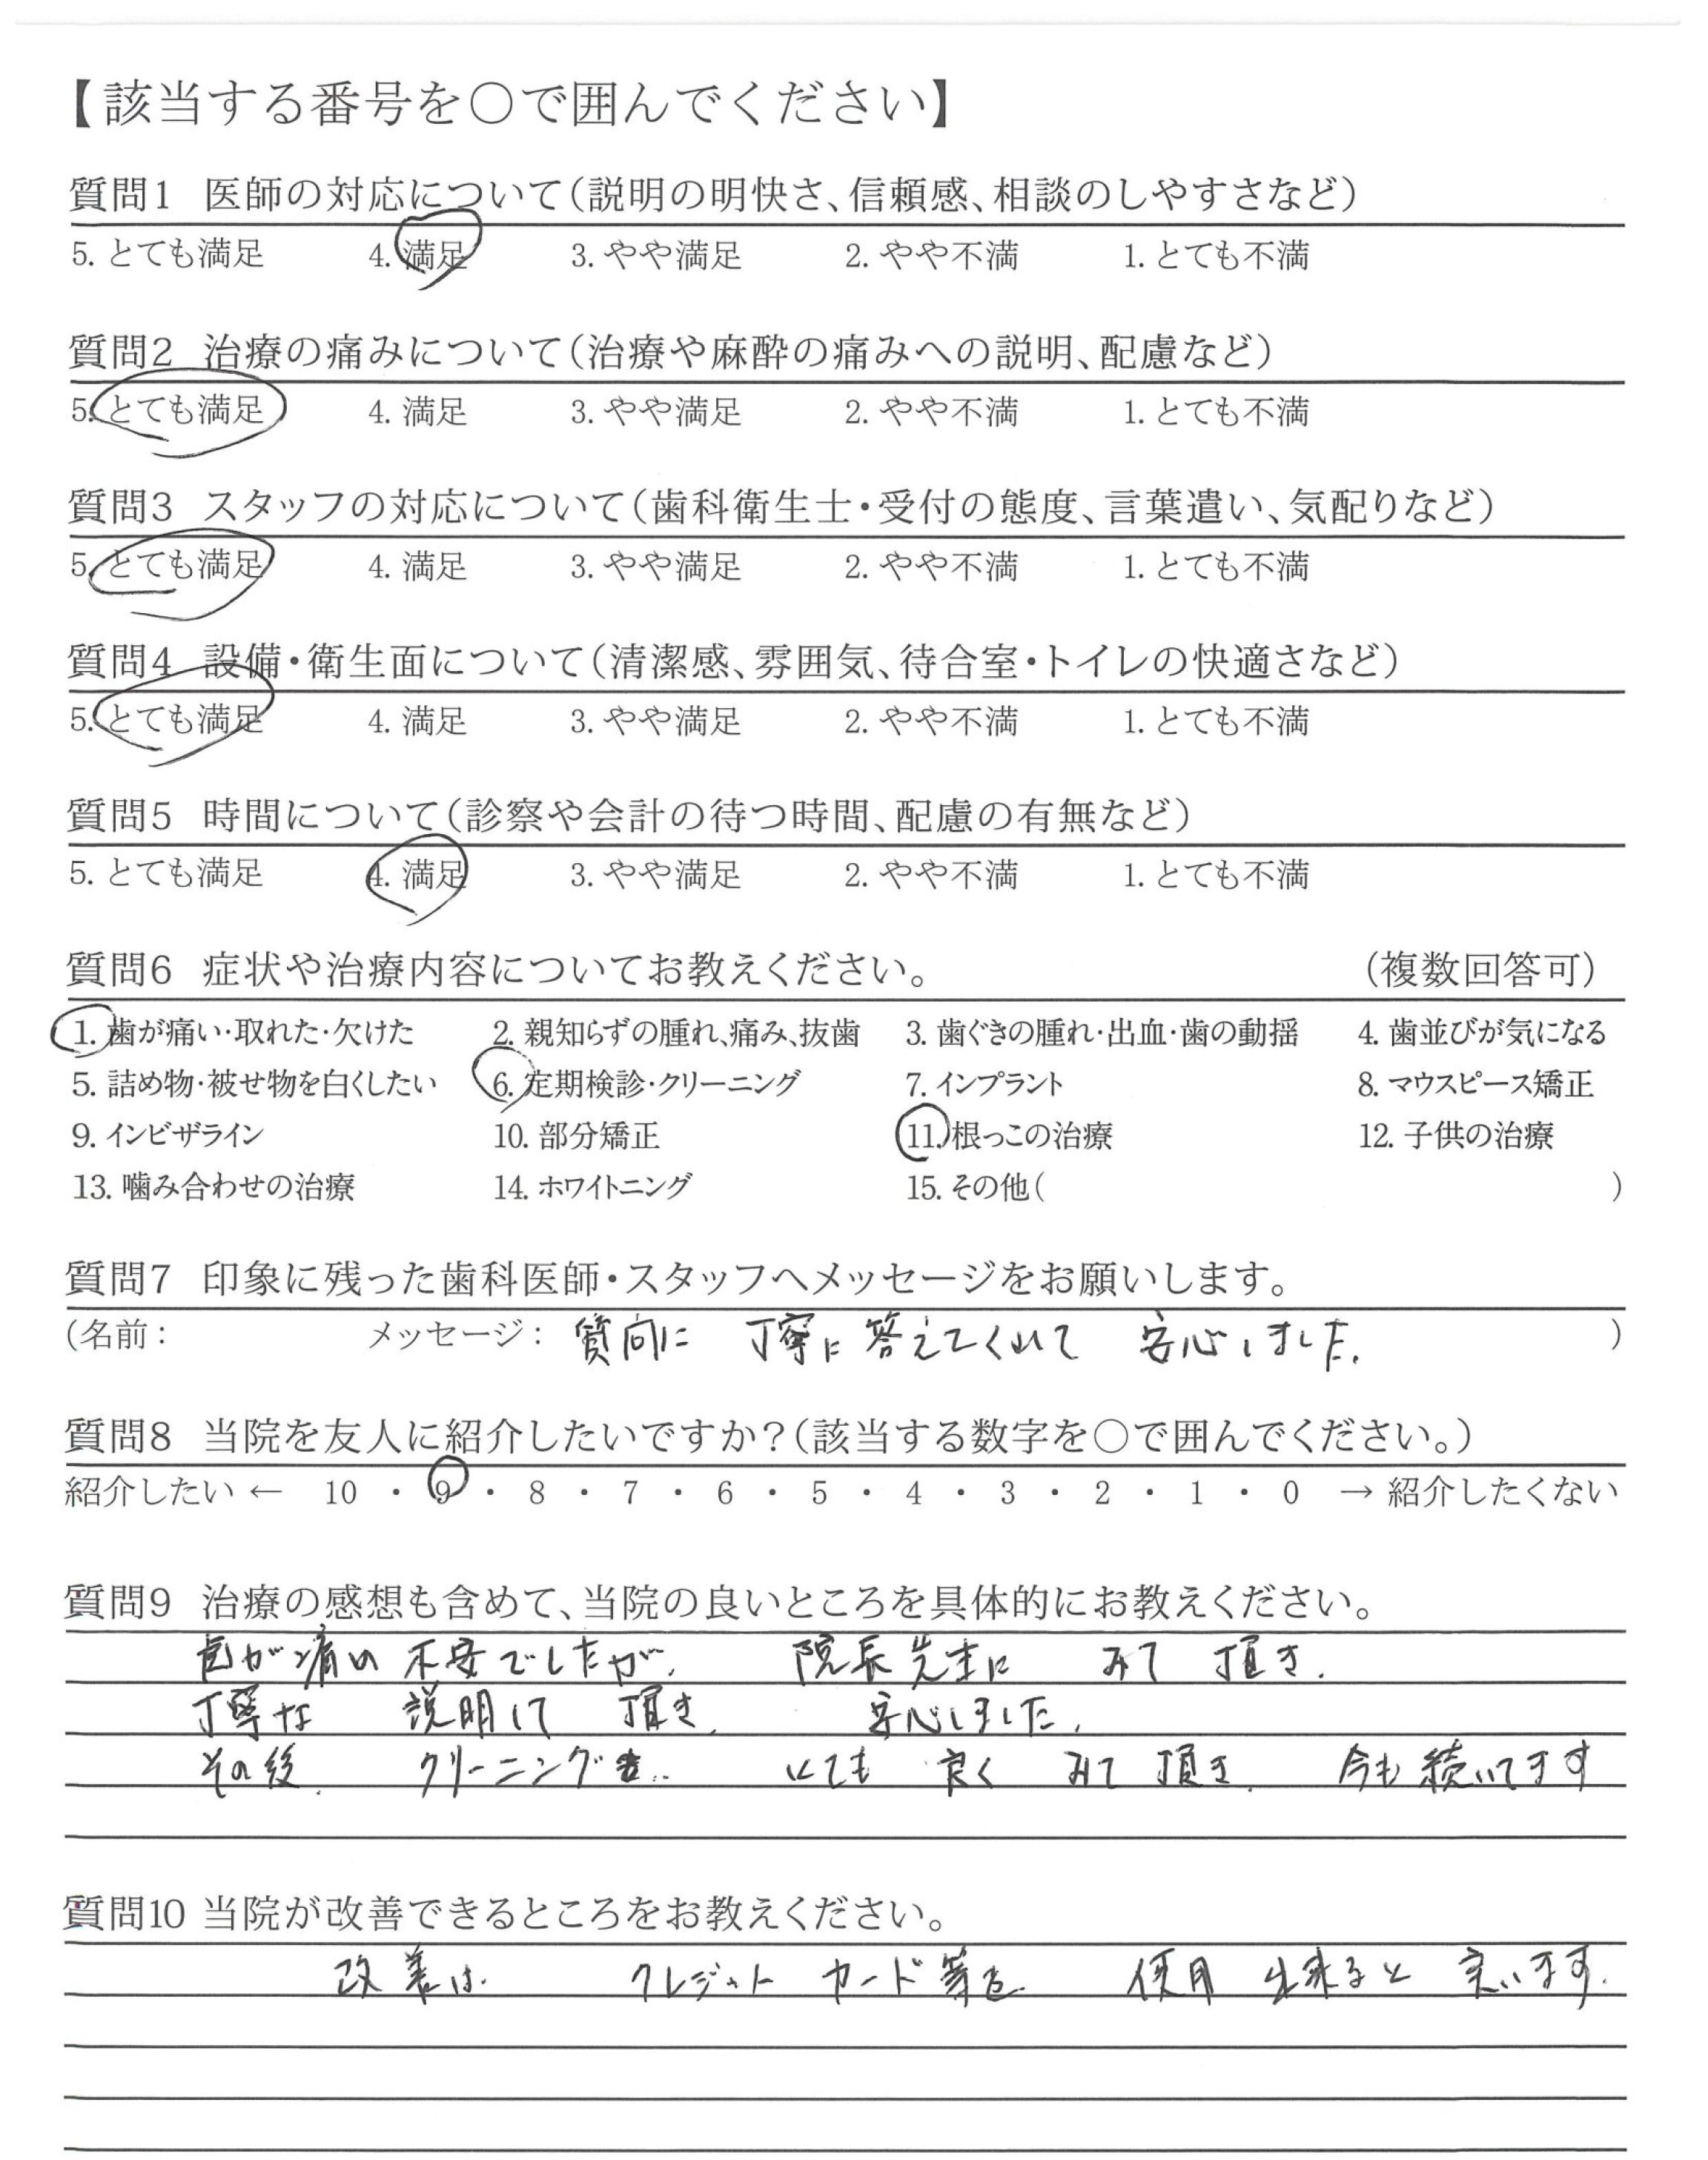 【該当する番号を〇で囲んでください】
質問1 医師の対応について(説明の明快さ、信頼感、相談のしやすさなど)
5. とても満足 4. 満足 3. やや満足 2. やや不満 1. とても不満
質問2 治療の痛みについて(治療や麻酔の痛みへの説明、配慮など)
5. とても満足 4. 満足 3. やや満足 2. やや不満 1. とても不満
質問3 スタッフの対応について(歯科衛生士・受付の態度、言葉遣い、気配りなど)
5. とても満足 4. 満足 3. やや満足 2. やや不満 1. とても不満
質問4 設備・衛生面について(清潔感、雰囲気、待合室・トイレの快適さなど)
5. とても満足 4. 満足 3. やや満足 2. やや不満 1. とても不満
質問5 時間について(診察や会計の待つ時間、配慮の有無など)
5. とても満足 4. 満足 3. やや満足 2. やや不満 1. とても不満
質問6 症状や治療内容についてお教えください。 (複数回答可)
1. 歯が痛い・取れた・欠けた 2. 親知らずの腫れ、痛み、抜歯 3. 歯ぐきの腫れ・出血・歯の動揺 4. 歯並びが気になる
5. 詰め物・被せ物を白くしたい 6. 定期検診・クリーニング 7. インプラント 8. マウスピース矯正
9. インビザライン 10. 部分矯正 11. 根っこの治療 12. 子供の治療
13. 噛み合わせの治療 14. ホワイトニング 15. その他( )
質問7 印象に残った歯科医師・スタッフへメッセージをお願いします。
(名前: メッセージ: 質問に 丁寧に 答えてくれて 安心しました。 )
質問8 当院を友人に紹介したいですか?(該当する数字を〇で囲んでください。)
紹介したい ← 10 ・ 9 ・ 8 ・ 7 ・ 6 ・ 5 ・ 4 ・ 3 ・ 2 ・ 1 ・ 0 → 紹介したくない
質問9 治療の感想も含めて、当院の良いところを具体的にお教えください。
歯が痛い 不安でしたが、 院長先生に みて 頂き、
丁寧な 説明して 頂き、 安心しました。
その後、 クリーニング とても 良く みて 頂き、 今も 続いてます
質問10 当院が改善できるところをお教えください。
改善は、 クレジット カード等を 使用 出来ると 良います。